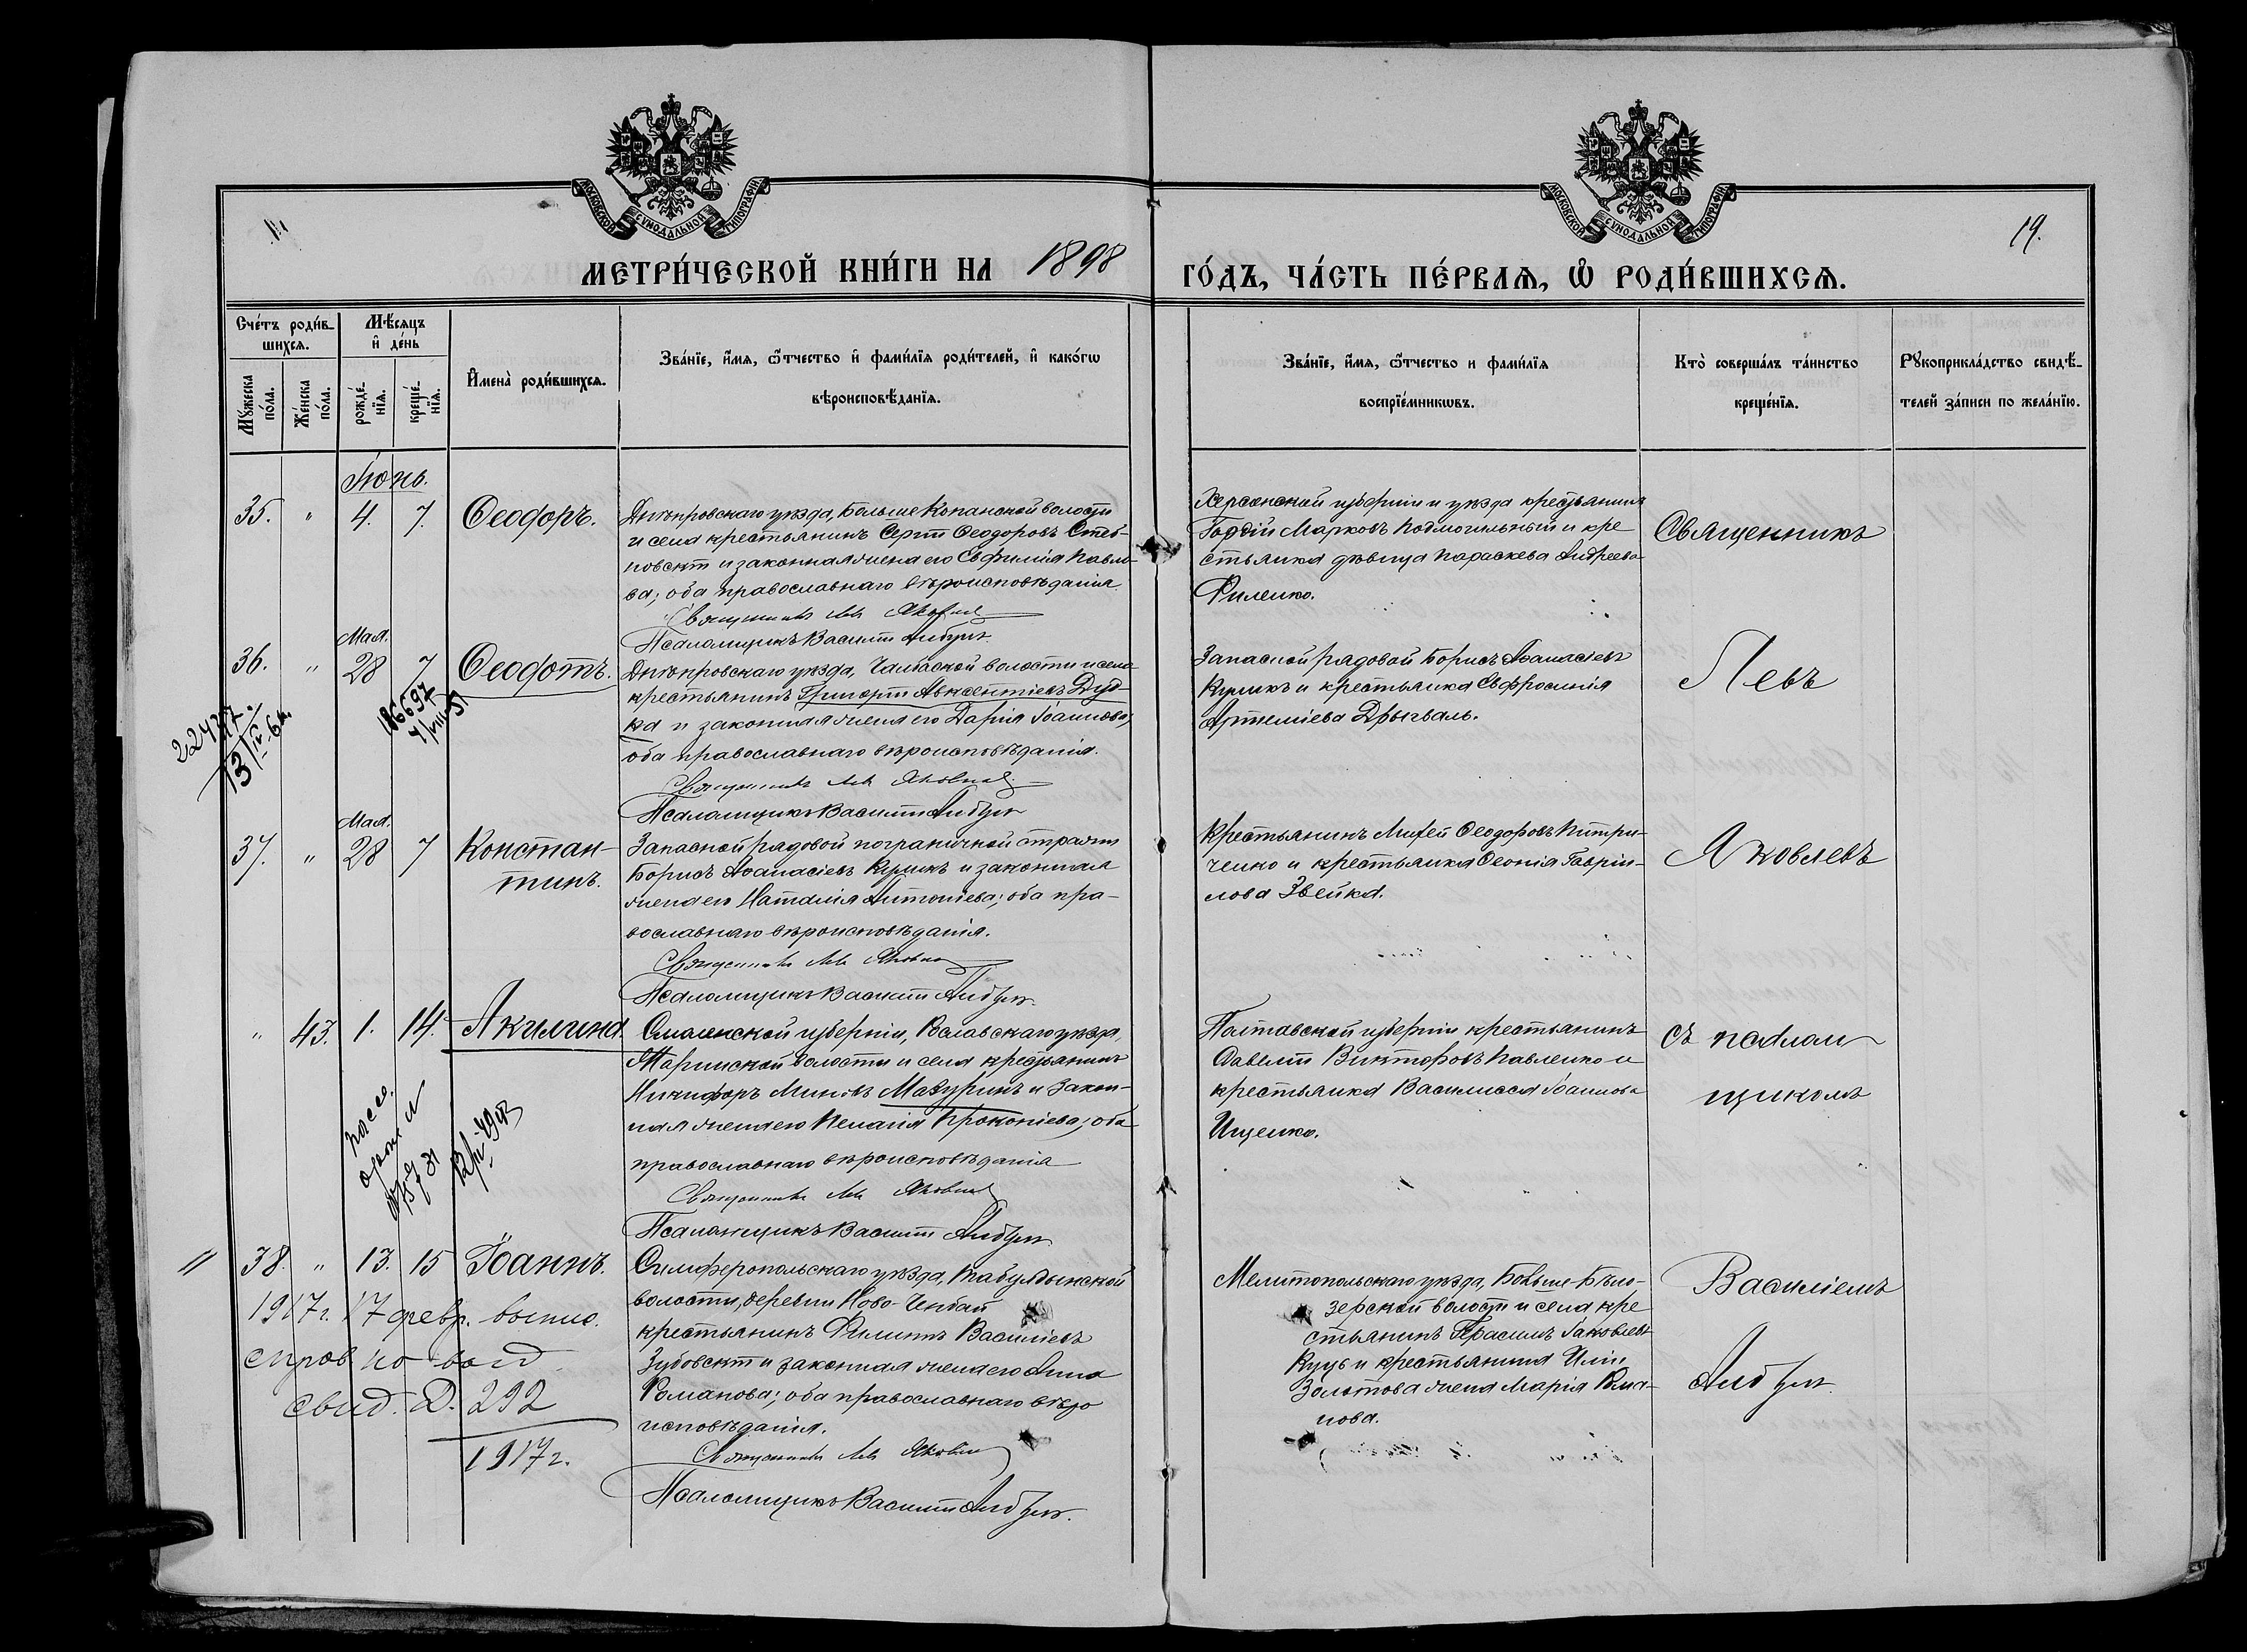 МОСКОВСКОЙ СѴНОДАЛЬНОЙ ТИПОГРАФІИ
МОСКОВСКОЙ СѴНОДАЛЬНОЙ ТИПОГРАФІИ
19.
МЕТРИ́ЧЕСКОЙ КНИ́ГИ НА 1898 ГО́ДЪ, ЧА́СТЬ ПЕ́РВАѦ, Ѡ҆ РОДИ́ВШИХСѦ.
Сче́тъ роди́в-
шихсѧ.
Мѣ́сѧцъ
и҆ де́нь
Мꙋжеска
по́ла.
Же́нска
по́ла.
рожде́-
нїѧ.
креще́-
нїѧ.
И҆мена̀ роди́вшихсѧ.
Зва́нїе, и҆́мѧ, ѻ҆́тчество и҆ фами́лїѧ роди́телей, и҆ како́гѡ
вѣроисповѣ́данїѧ.
Зва́нїе, и҆́мѧ, ѻ҆́тчество и фами́лїѧ
воспрїе́мникѡвъ.
Кто̀ соверша́лъ та́инство
креще́нїѧ.
Рꙋкоприкла́дство свидѣ́-
телей за́писи по жела́нїю.
Іюнь.
35. " 4. 7. Ѳеодоръ.
Днѣпровскаго уѣзда, Больше Копанской волости
и села крестьянинъ Сергій Ѳеодоровъ Стеб-
новскій и законная жена его Евфимія Павло-
ва; оба православнаго вѣроисповѣданія.
Священникъ Левъ Яковлевъ
Псаломщикъ Василій
Херсонской губерніи и уѣзда крестьянинъ
Гордій Марковъ Помогильный и кре
стьянка дѣвица Параскева Андреева
Филенко.
Священникъ
Мая.
36. " 28 7 Ѳеодотъ.
Днѣпровскаго уѣзда, Чалбаской волости и села
крестьянинъ Григорій Авксентіевъ Дуд-
ка и законная жена его Дарія Іоаннова;
оба православнаго вѣроисповѣданія.
Священникъ Левъ Яковлевъ
Псаломщикъ Василій
Запасной рядовой Борисъ Аѳанасіевъ
Куликъ и крестьянка Евфросинія
Артеміева Дрыгваль.
Левъ
Мая.
37. " 28 7 Констан-
тинъ.
Запасной рядовой пограничной стражи
Борисъ Аѳанасіевъ Куликъ и законная
жена его Наталія Антоніева; оба пра-
вославнаго вѣроисповѣданія.
Священникъ Левъ Яковлевъ
Псаломщикъ Василій
Крестьянинъ Ѳеодоровъ Питри-
ченко и крестьянка Ѳеонія Гаврій-
лова Звейка.
Яковлевъ
" 43. 1. 14. Акилина.
Смоленской губерніи, Рославскаго уѣзда,
Маріинской волости и села крестьянинъ
Никифоръ Миновъ Мазуринъ и закон-
ная жена его Пелагія Прокопіева; оба
православнаго вѣроисповѣданія
Священникъ Левъ Яковлевъ
Псаломщикъ Василій
Полтавской губерніи крестьянинъ
Савелій Викторовъ Павленко и
крестьянка Василисса Іоаннова
Ищенко.
съ псалом
щикомъ
38. " 13. 15 Іоаннъ.
Симферопольскаго уѣзда, Табулдынской
волости, деревни Ново-Ченбай
крестьянинъ Филиппъ Василіевъ
Зубовскій и законная жена его Анна
Романова; оба православнаго вѣро
исповѣданія.
Священникъ Левъ Яковлевъ
Псаломщикъ Василій
Мелитопольскаго уѣзда, Больше-Бѣло-
зерской волости и села кре
стьянинъ Герасимъ Іаковлевъ
Куцъ и крестьянина Иліи
Золотова жена Марія Рома-
нова.
Василіемъ
1917г. 17 февр. выпис.
справ по
свид. Д. 292
1917г.